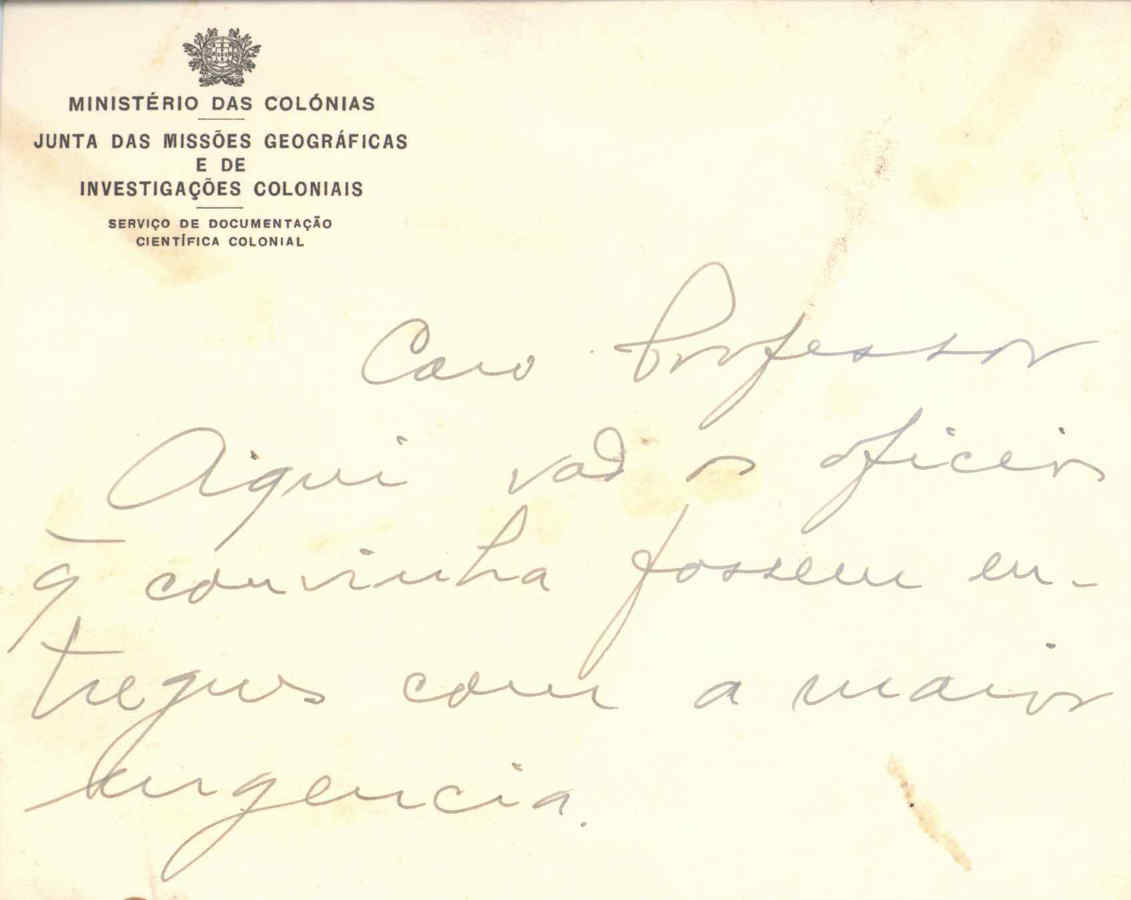 MINISTÉRIO DAS COLÓNIAS
JUNTA DAS MISSÕES GEOGRÁFICAS
E DE
INVESTIGAÇÕES COLONIAIS
SERVIÇO DE DOCUMENTAÇÃO
CIENTÍFICA COLONIAL
Caro Professor
Aqui vão os oficios
q̄ convinha fossem en-
tregues com a maior
urgencia.